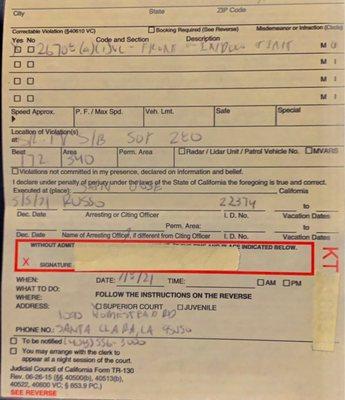 City State ZIP Code
Correctable Violation (§40610 VC) Booking Required (See Reverse) Misdemeanor or Infraction (Circle)
Yes No Code and Section Description
FRONT WINDOW TINT M I
M I
M I
M I
Speed Approx. P. F. / Max Spd. Veh. Lmt. Safe Special
Location of Violation(s)
at: S/B SOF 280
Beat Area Perm. Area Radar / Lidar Unit / Patrol Vehicle No. MVARS
172 340
Violations not committed in my presence, declared on information and belief.
I declare under penalty of perjury under the laws of the State of California the foregoing is true and correct.
Executed at (place): SAN JOSE California
5/5/21 RUSSO 22374 to
Dec. Date Arresting or Citing Officer I. D. No. Vacation Dates
Perm. Area: to
Dec. Date Name of Arresting Officer, if different from Citing Officer I. D. No. Vacation Dates
WITHOUT ADMIT PLACE INDICATED BELOW.
X SIGNATURE
KT
WHEN: DATE: /21 TIME: AM PM
WHAT TO DO: FOLLOW THE INSTRUCTIONS ON THE REVERSE
WHERE: SUPERIOR COURT JUVENILE
ADDRESS: HOMESTEAD RD
SANTA CLARA, CA 95050
PHONE NO.:
To be notified
You may arrange with the clerk to
appear at a night session of the court.
Judicial Council of California Form TR-130
Rev. 06-26-15 (§§ 40500(b), 40513(b),
40522, 40600 VC; § 853.9 PC.)
SEE REVERSE